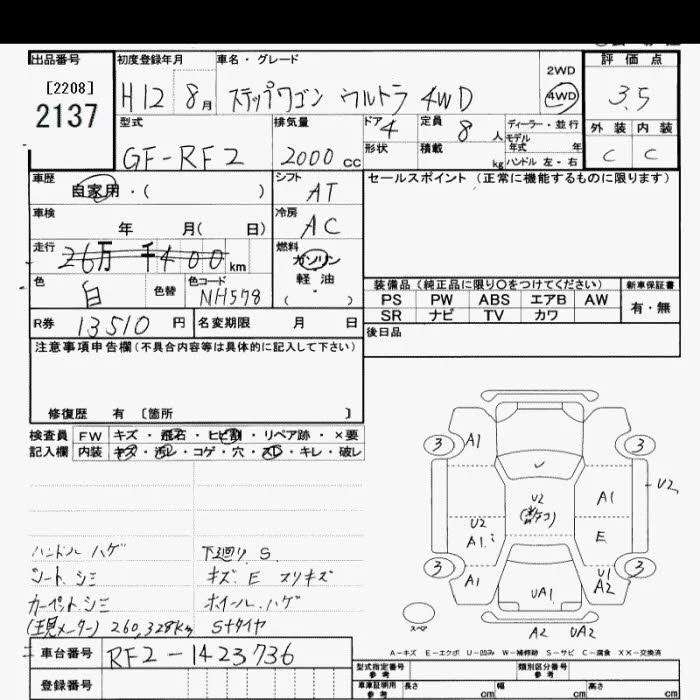 出品番号 初度登録年月 車名・グレード 評価点
[2208]
2137
H12 8月 ステップワゴン ウルトラ 4WD
2WD
4WD
3.5
型式 排気量 ドア 4 定員 8人 ディーラー・並行
モデル年式 年
外装 内装
GF-RF2 2000cc
形状 積載 kg ハンドル 左・右
C C
車歴 自家用・( ) シフト AT
セールスポイント(正常に機能するものに限ります)
車検 年 月( 日) 冷房 AC
走行 26万 千400 km
燃料 ガソリン
軽油
( ・ )
色 白 色替 色コード NH578
装備品(純正品に限り○をつけてください) 新車保証書
PS PW ABS エアB AW 有・無
SR ナビ TV カワ
R券 13510 円 名変期限 月 日
後日品
注意事項申告欄(不具合内容等は具体的に記入して下さい)
修復歴 有 〔箇所 〕
検査員 FW キズ・飛石・ヒビ割・リペア跡・×要
記入欄 内装 キズ・汚レ・コゲ・穴・スレ・キレ・破レ
3 A1 3
U2
A1
U2
U2
A1
E
3 A1 UA1 U1 A2 3
スペア
A2 UA2
ハンドル ハゲ 下廻り S
シート シミ キズ E スリキズ
カーペット シミ ホイール ハゲ
(現メーター) 260,328km Sタイヤ
A-キズ E-エクボ U-凹み W-補修跡 S-サビ C-腐食 XX-交換済
車台番号 RF2-1423736
型式指定番号 参考 類別区分番号 参考
登録番号
車庫証明用 参考 長さ cm 幅 cm 高さ cm